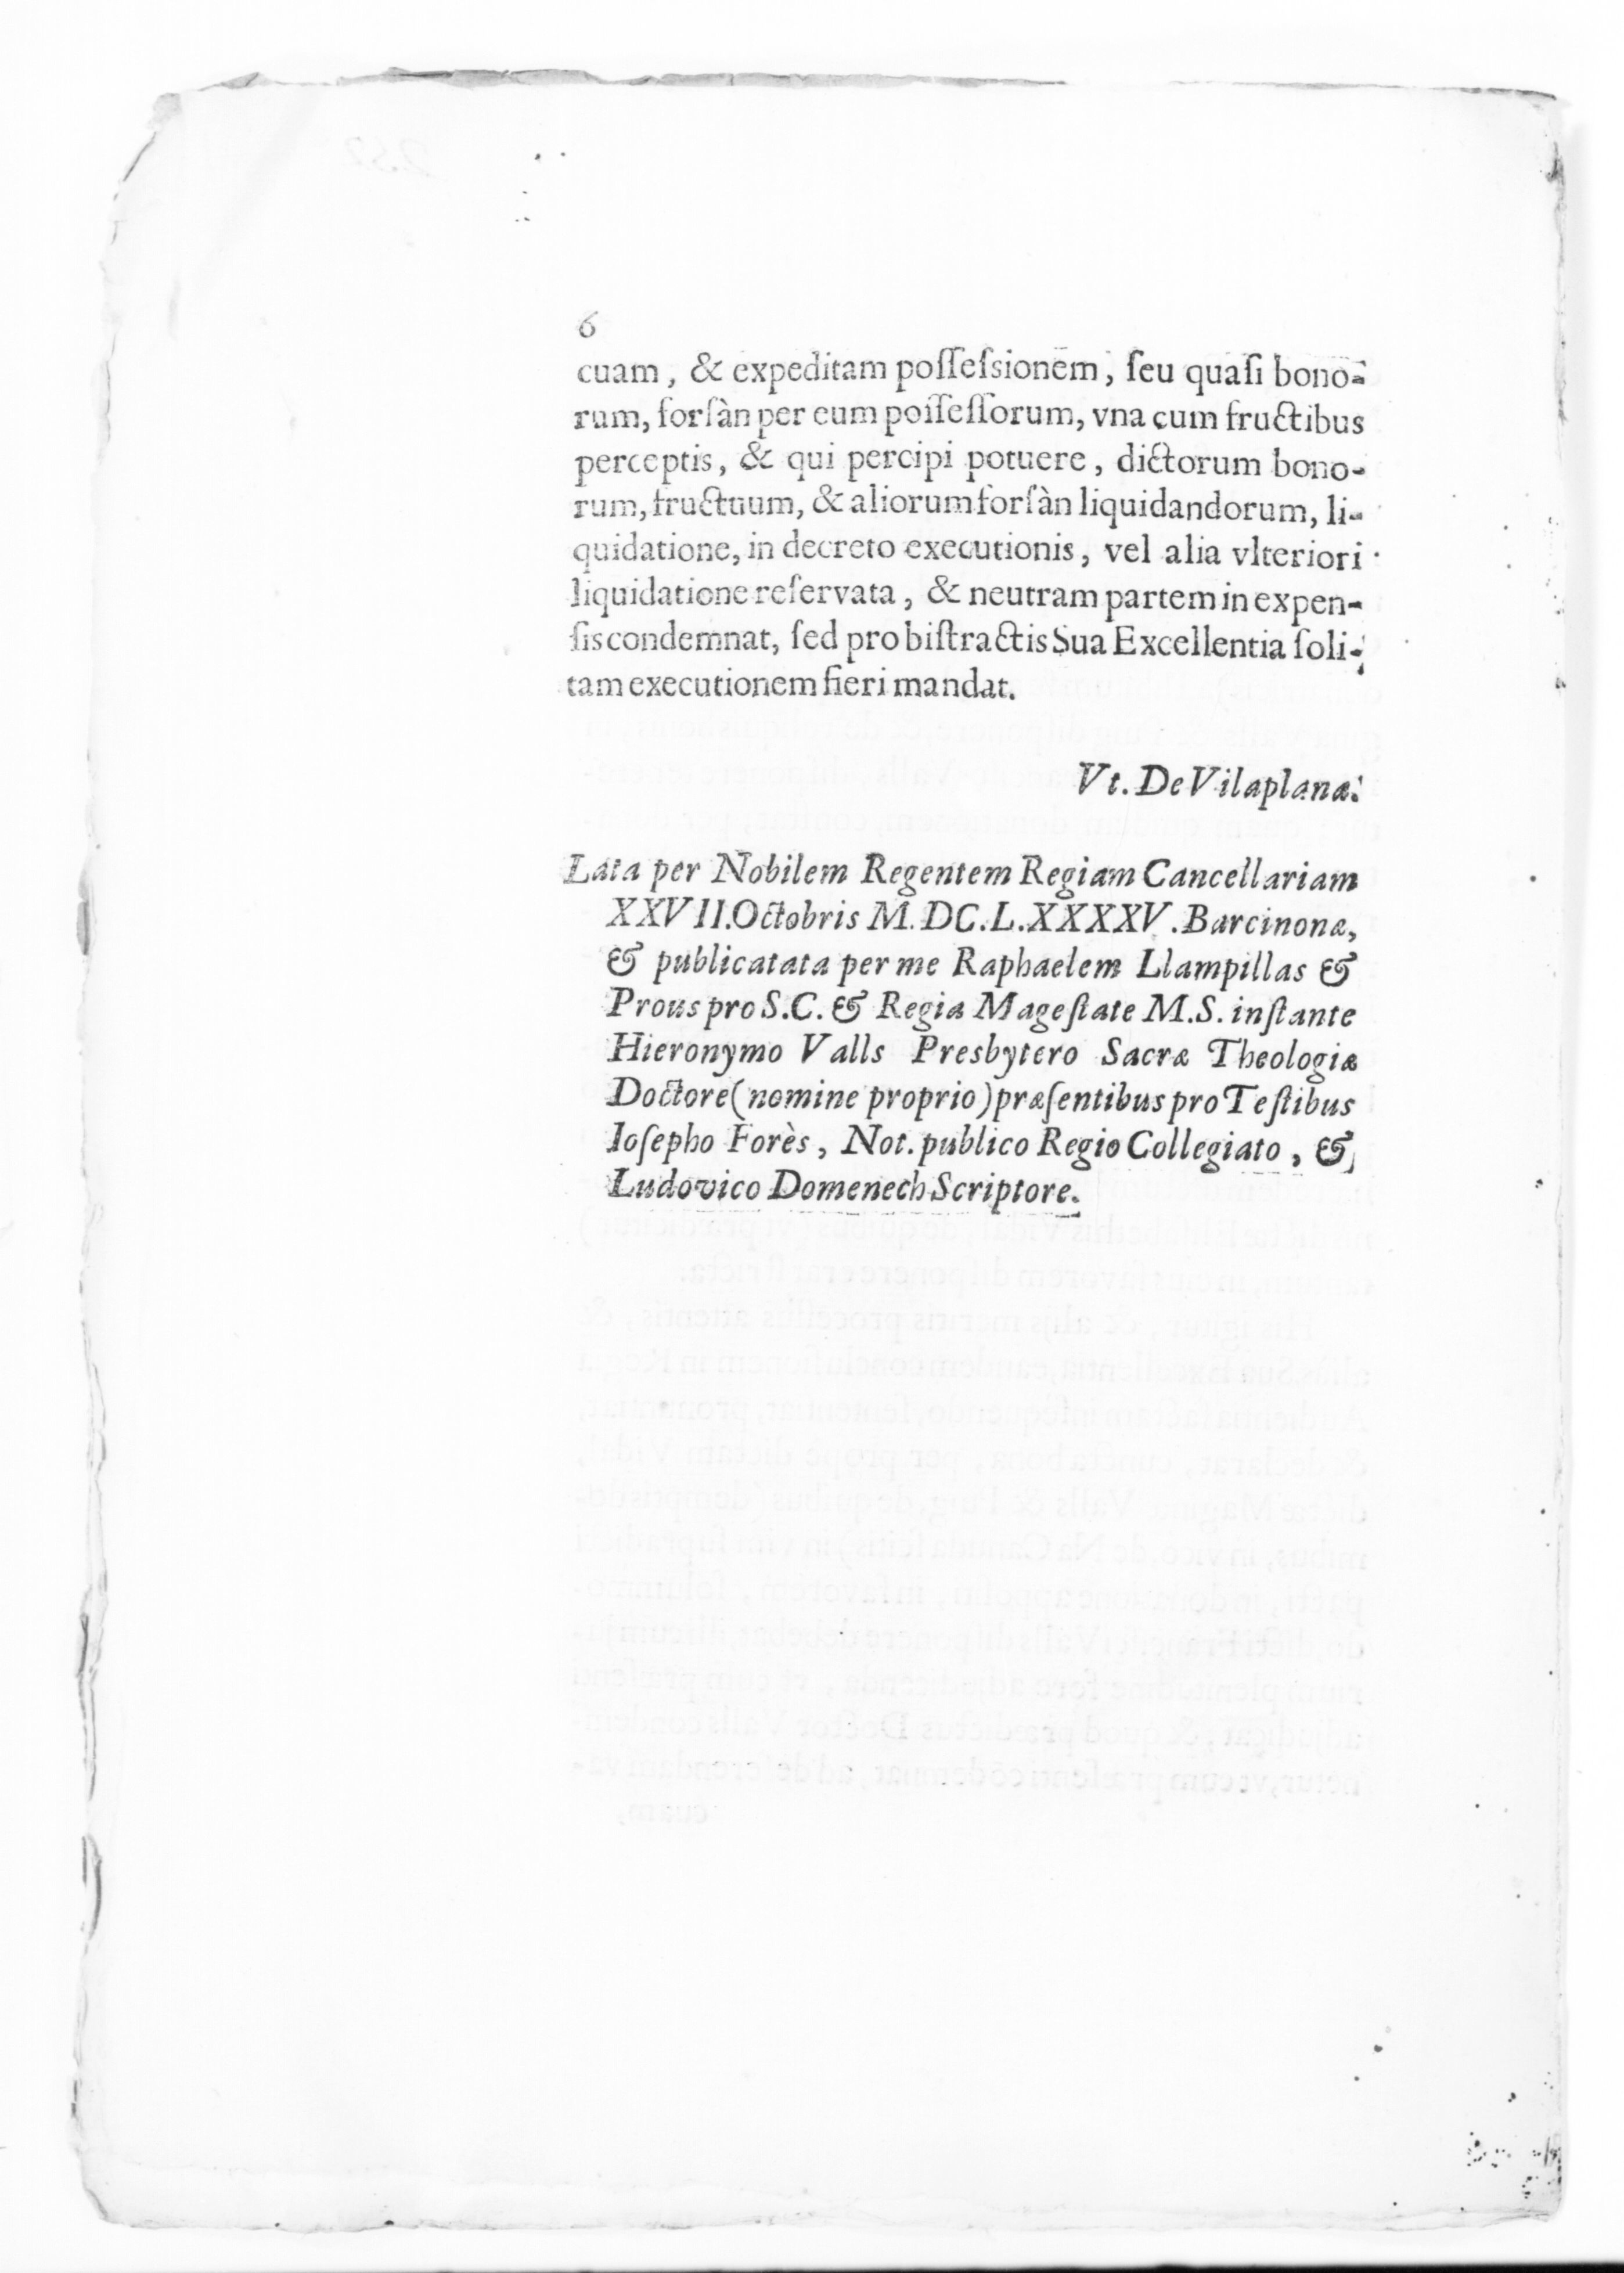 6
cuam, & expeditam poſſeſsionem, ſeu quaſi bono-
rum, forſàn per eum poſſeſſorum, vna cum fructibus
perceptis, & qui percipi potuere, dictorum bono-
rum, fructuum, & aliorum forſàn liquidandorum, li-
quidatione, in decreto executionis, vel alia vlteriori
liquidatione reſervata, & neutram partem in expen-
ſis condemnat, ſed pro biſtractis Sua Excellentia ſoli-
tam executionem fieri mandat.
Vt. De Vilaplana.
Lata per Nobilem Regentem Regiam Cancellariam
XXVII. Octobris M. DC. L. XXXXV. Barcinonæ,
& publicatata per me Raphaelem Llampillas &
Prous pro S.C. & Regia Mageſtate M.S. inſtante
Hieronymo Valls Presbytero Sacræ Theologiæ
Doctore (nomine proprio) præſentibus pro Teſtibus
Ioſepho Forès, Not. publico Regio Collegiato, &
Ludovico Domenech Scriptore.